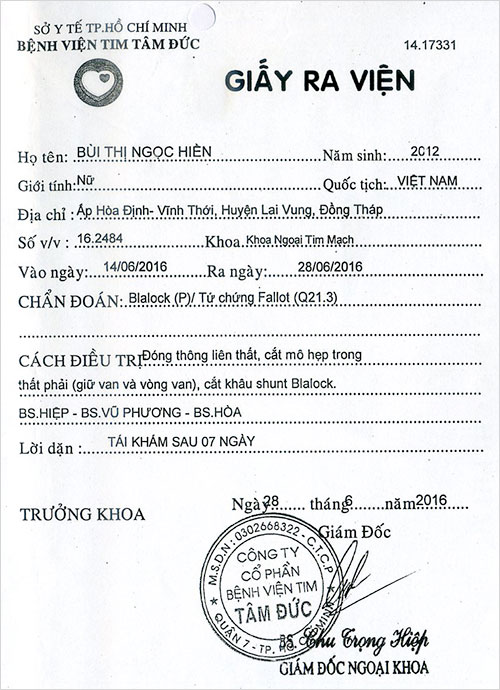 SỞ Y TẾ TP.HỒ CHÍ MINH
BỆNH VIỆN TIM TÂM ĐỨC
14.17331
GIẤY RA VIỆN
Họ tên: BÙI THỊ NGỌC HIỀN Năm sinh: 2012
Giới tính: Nữ Quốc tịch: VIỆT NAM
Địa chỉ : Ấp Hòa Định- Vĩnh Thới, Huyện Lai Vung, Đồng Tháp
Số v/v : 16.2484 Khoa Khoa Ngoại Tim Mạch
Vào ngày: 14/06/2016 Ra ngày: 28/06/2016
CHẨN ĐOÁN: Blalock (P)/ Tứ chứng Fallot (Q21.3)
CÁCH ĐIỀU TRỊ Đóng thông liên thất, cắt mô hẹp trong
thất phải (giữ van và vòng van), cắt khâu shunt Blalock.
BS.HIỆP - BS.VŨ PHƯƠNG - BS.HÒA
Lời dặn : TÁI KHÁM SAU 07 NGÀY
Ngày 28 tháng 6 năm 2016
TRƯỞNG KHOA
Giám Đốc
M.S.D.N : 0302668322 - C.T.C.P
CÔNG TY
CỔ PHẦN
BỆNH VIỆN TIM
TÂM ĐỨC
QUẬN 7 - TP. HỒ CHÍ MINH
BS. Chu Trọng Hiệp
GIÁM ĐỐC NGOẠI KHOA